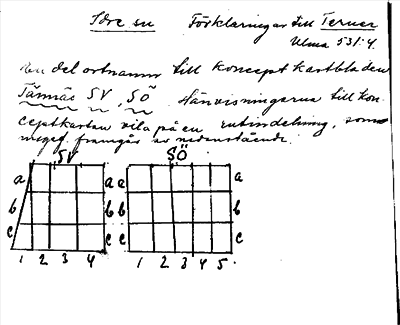 Idre sn Förklaringar till Ternes
Ulma 531:4.
en del ortnamn till konceptkartbladen
Tännäs SV, SÖ. Hänvisningarna till kon-
ceptkartan vila på en rutindelning, som
framgår av nedanstående.
SV SÖ
a a a a
b b b b
c c c c
1 2 3 4 1 2 3 4 5